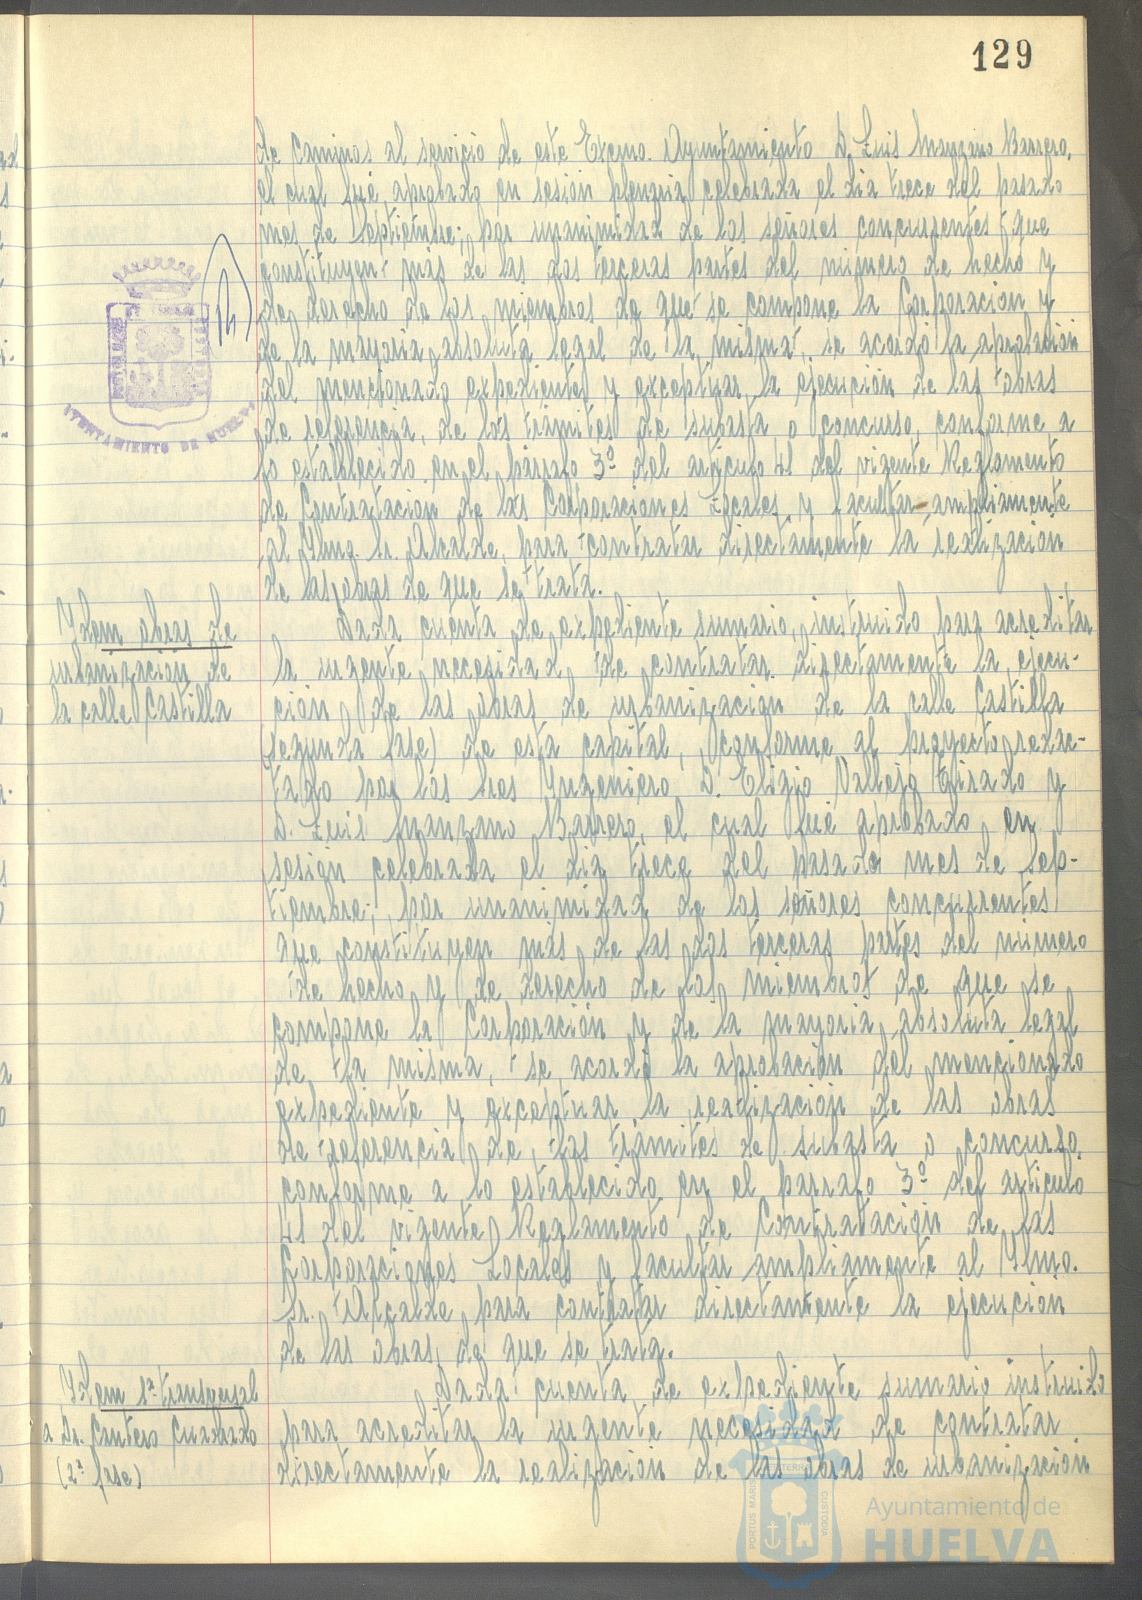 129
de Caminos al servicio de este Excmo. Ayuntamiento D. Luis Manzano Barrero,
el cual fué aprobado en sesión plenaria celebrada el dia trece del pasado
mes de Septiembre; por unanimidad de los señores concurrentes que
constituyen más de las dos terceras partes del número de hecho y
de derecho de los miembros de que se compone la Corporación y
de la mayoria absoluta legal de la misma, se acordó la aprobación
del mencionado expediente y exceptuar la ejecución de las obras
de referencia, de los trámites de subasta o concurso, conforme a
lo establecido en el párrafo 3º del artículo 41 del vigente Reglamento
de Contratación de las Corporaciones Locales y facultar ampliamente
al Ilmo. Sr. Alcalde, para contratar directamente la realización
de las obras de que se trata.
AYUNTAMIENTO DE HUELVA
Idem obras de
urbanización de
la calle Castilla
Dada cuenta de expediente sumario, instruido para acreditar
la urgente necesidad de contratar directamente la ejecu-
ción de las obras de urbanización de la calle Castilla
(segunda fase) de esta capital, conforme al proyecto redac-
tado por los sres Ingeniero D. Eligio Vallejo Tirado y
D. Luis Manzano Barrero, el cual fué aprobado en
sesión celebrada el dia trece del pasado mes de Sep-
tiembre; por unanimidad de los señores concurrentes
que constituyen más de las dos terceras partes del número
de hecho y de derecho de los miembros de que se
compone la Corporación y de la mayoria absoluta legal
de la misma, se acordó la aprobación del mencionado
expediente y exceptuar la realización de las obras
de referencia de los trámites de subasta o concurso,
conforme a lo establecido en el párrafo 3º del artículo
41 del vigente Reglamento de Contratación de las
Corporaciones Locales y facultar ampliamente al Ilmo.
Sr. Alcalde para contratar directamente la ejecución
de las obras de que se trata.
Idem 1ª transversal
a Dr. Cantero Cuadrado
(2ª fase)
Dada cuenta de expediente sumario instruido
para acreditar la urgente necesidad de contratar
directamente la realización de las obras de urbanización
PORTUS MARIS
CUSTODIA
Ayuntamiento de
HUELVA